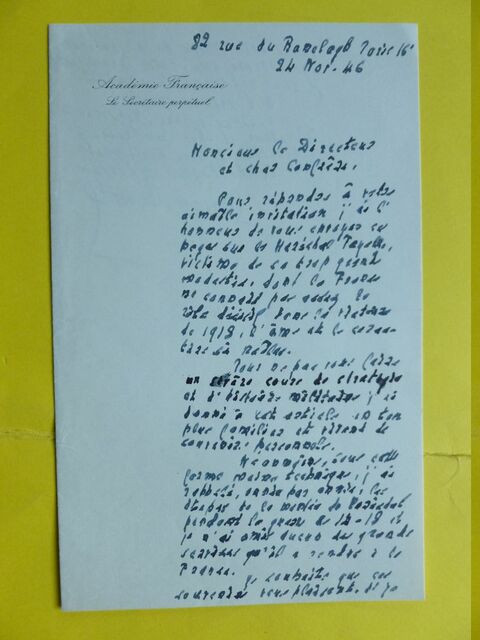 82 rue du Ranelagh Paris 16e
24 Nov. 46
Académie Française
Le Secrétaire perpétuel
Monsieur le Directeur
et cher Confrère,
Pour répondre à votre
aimable invitation j'ai l'
honneur de vous envoyer ces
pages sur le Maréchal Fayolle,
victime de sa trop grande
modestie, dont la France
ne connaît pas assez le
rôle décisif dans la victoire
de 1918, l'âme et le carac-
tère si nobles.
Pour ne pas vous faire
un sévère cours de stratégie
et d'histoire militaire j'ai
donné à cet article un ton
plus familier et vivant de
souvenirs personnels.
Néanmoins, sous cette
forme moins technique, j'ai
rappelé, année par année, les
étapes de la montée du Maréchal
pendant la guerre de 14-18 et
je n'ai omis aucun des grands
services qu'il a rendus à la
France.
Je souhaite que ces
souvenirs vous plaisent.